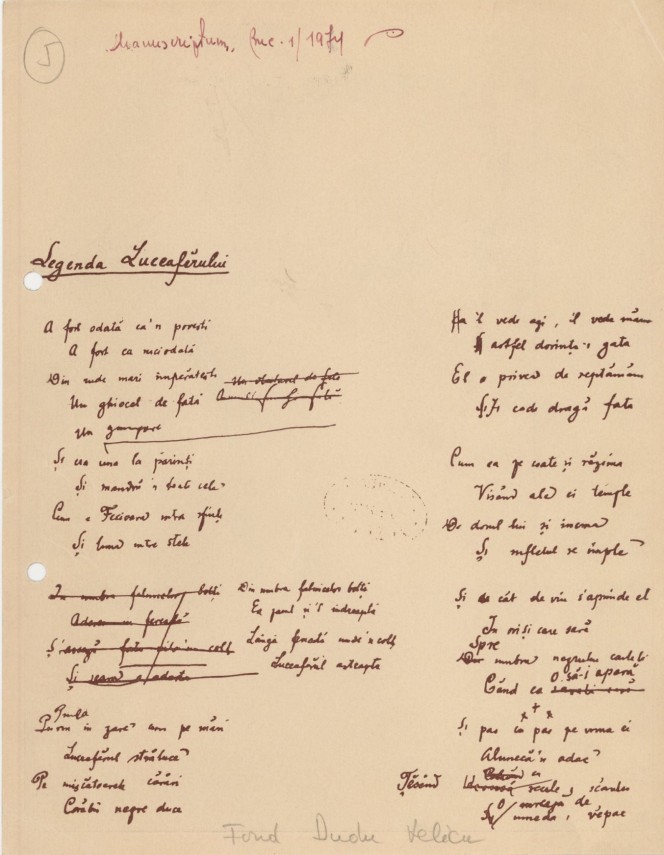 5
Manuscriptum, Buc. 1/1974
Legenda Luceafărului
A fost odată ca'n povesti
A fost ca niciodată
Din rude mari împărătești
Un ghiocel de fată
Un
Și era una la părinți
Și mandră'n toate cele
Cum e Fecioara intre sfinți
Și luna intre stele
In umbra falnicelor bolți
Și
Din umbra falnicelor bolți
Ea pasul și'l indreaptă
Lângă fereastă unde'n colț
Luceafărul asteapta
Privea in zare cum pe mări
Luceafărul străluce
Pe mișcătoarele cărări
Corăbii negre duce
Il vede azi, il vede mâine
Astfel dorința-i gata
El o privea de săptămâni
Și-i cade dragă fata
Cum ea pe coate-și răzima
Visând ale ei tîmple
De dorul lui și inima
Și sufletul se împle
Și de cât de viu s'aprinde el
In orișicare sară
Spre
umbra negrului castel
Când ea o să-i apară
x + x
Și pas cu pas pe urma ei
Alunecă'n odae
Țesând
recile, scantei
O mreajă de
văpae
Fond Dudu Velicu